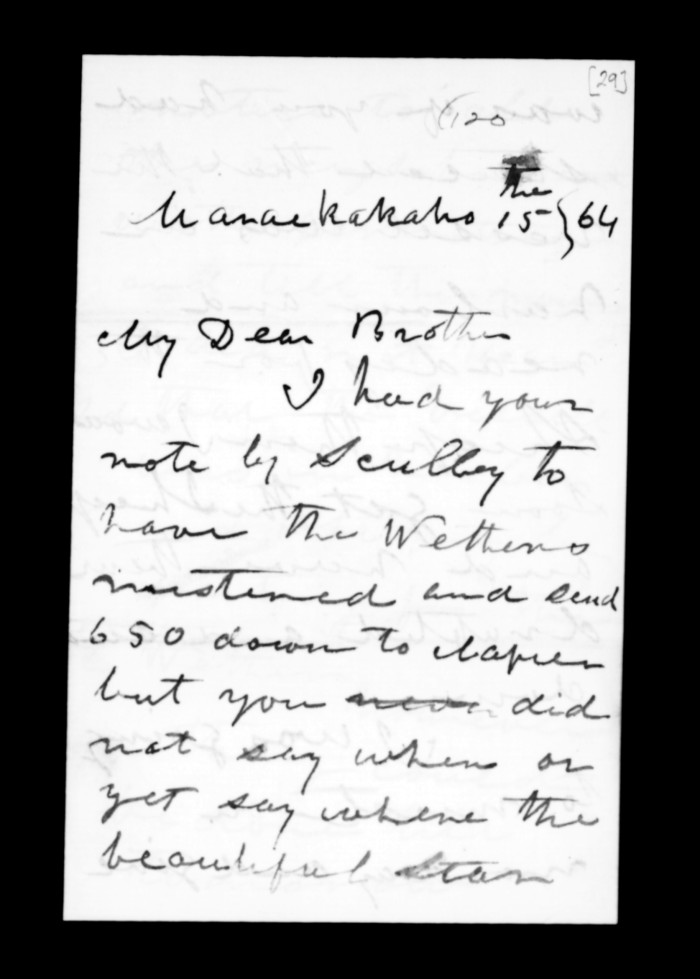 [29]
120
Maraekakaho 15 the } 64
My Dear Brother
I had your
note by Sculley to
have the Wethers
mustered and send
650 down to Napier
but you never did
not say when or
yet say where the
beautiful Star